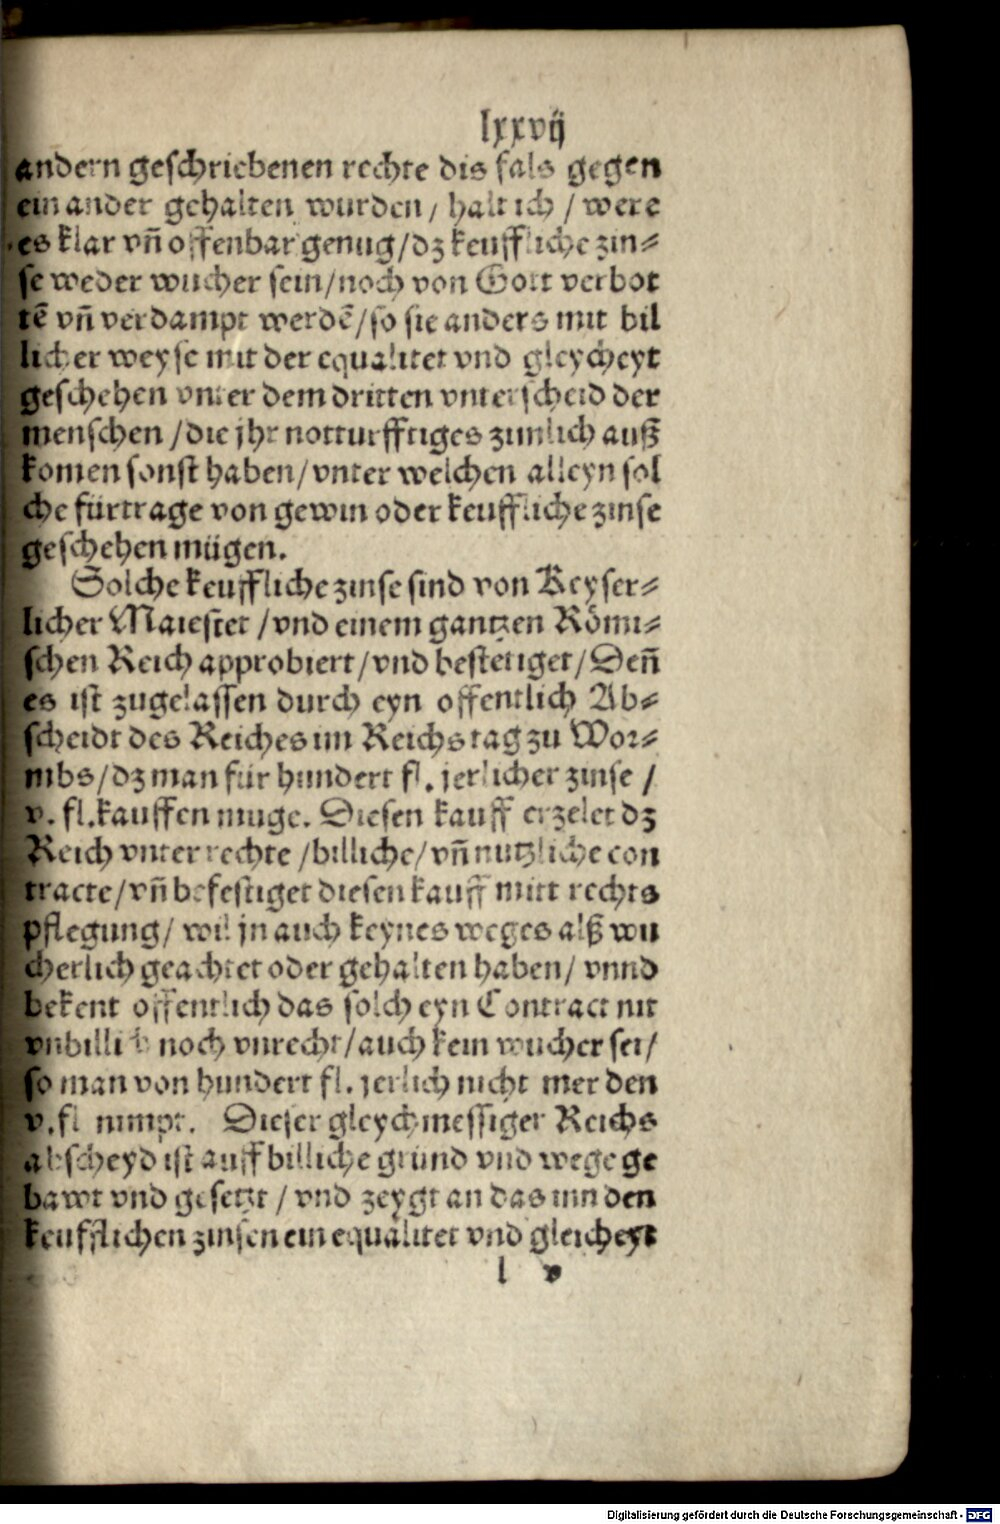 lxxvij
andern geschriebenen rechte dis fals gegen
ein ander gehalten wurden / halt ich / were
es klar vn̄ offenbar genug / dz keuffliche zin⸗
se weder wucher sein / noch von Gott verbot
tē vn̄ verdampt werdē / so sie anders mit bil
licher weyse mit der equalitet vnd gleycheyt
geschehen vnter dem dritten vnterscheid der
menschen / die jhr notturfftiges zimlich auß
komen sonst haben / vnter welchen alleyn sol
che fürtrage von gewin oder keuffliche zinse
geschehen mügen.
Solche keuffliche zinse sind von Keyser⸗
licher Maiestet / vnd einem gantzen Römi⸗
schen Reich approbiert / vnd bestetiget / Den̄
es ist zugelassen durch eyn offentlich Ab⸗
scheidt des Reiches im Reichstag zu Wor⸗
mbs / dz man für hundert fl. jerlicher zinse /
v. fl. kauffen muge. Diesen kauff erzelet dz
Reich vnter rechte / billiche / vn̄ nutzliche con
tracte / vn̄ befestiget diesen kauff mitt rechts
pflegung / wil jn auch keynes weges alß wu
cherlich geachtet oder gehalten haben / vnnd
bekent offentlich das solch eyn Contract nit
vnbillich noch vnrecht / auch kein wucher sei /
so man von hundert fl. jerlich nicht mer den
v. fl nimpt. Dieser gleychmessiger Reichs
abscheyd ist auff billiche grund vnd wege ge
bawt vnd gesetzt / vnd zeygt an das inn den
keufflichen zinsen ein equalitet vnd gleicheyt
l v
Digitalisierung gefördert durch die Deutsche Forschungsgemeinschaft - DFG